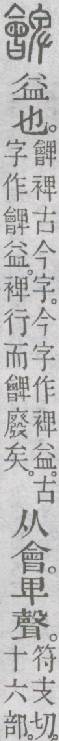 朇
益也。
朇裨古今字。今字作裨益。古
字作朇益。裨行而朇廢矣。
从會。卑聲。
符支切。
十六部。